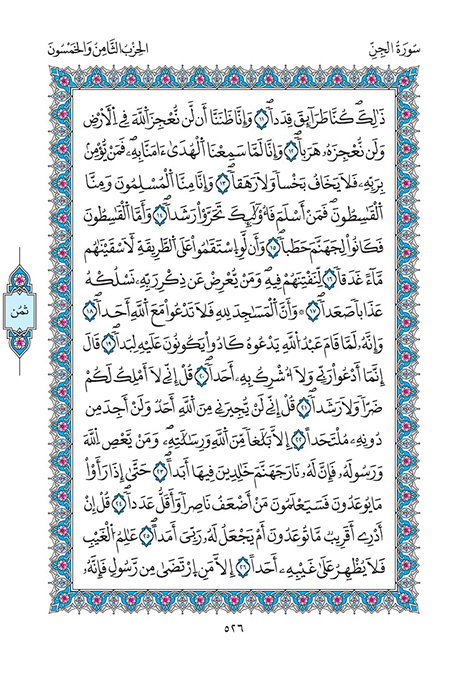 سُورَةُ الجِنِّ
الحِزْبُ الثَّامِنُ وَالخَمْسُونَ
ذَٰلِكَ كُنَّا طَرَآئِقَ قِدَدٗا ١١ وَإِنَّا ظَنَنَّا أَن لَّن نُّعْجِزَ اَللَّهَ فِي اِلْأَرْضِ
وَلَن نُّعْجِزَهُۥ هَرَبٗا ١٢ وَإِنَّا لَمَّا سَمِعْنَا اَلْهُدَىٰٓ ءَامَنَّا بِهِۦ فَمَنْ يُّؤْمِنۢ
بِرَبِّهِۦ فَلَا يَخَافُ بَخْسٗا وَلَا رَهَقٗا ١٣ وَإِنَّا مِنَّا اَلْمُسْلِمُونَ وَمِنَّا
اَلْقَٰسِطُونَ فَمَنْ أَسْلَمَ فَأُوْلَٰٓئِكَ تَحَرَّوْاْ رَشَدٗا ١٤ وَأَمَّا اَلْقَٰسِطُونَ
فَكَانُواْ لِجَهَنَّمَ حَطَبٗا ١٥ وَأَن لَّوِ اِسْتَقَٰمُواْ عَلَى اَلطَّرِيقَةِ لَأَسْقَيْنَٰهُم
مَّآءً غَدَقٗا ١٦ لِّنَفْتِنَهُمْ فِيهِ وَمَنْ يُّعْرِضْ عَن ذِكْرِ رَبِّهِۦ نَسْلُكْهُ
عَذَابٗا صَعَدٗا ١٧ ۞ وَأَنَّ اَلْمَسَٰجِدَ لِلهِ فَلَا تَدْعُواْ مَعَ اَللَّهِ أَحَدٗا ١٨
وَإِنَّهُۥ لَمَّا قَامَ عَبْدُ اُللَّهِ يَدْعُوهُ كَادُواْ يَكُونُونَ عَلَيْهِ لِبَدٗا ١٩ قَالَ
إِنَّمَآ أَدْعُواْ رَبِّے وَلَآ أُشْرِكُ بِهِۦٓ أَحَدٗا ٢٠ قُلْ إِنِّے لَآ أَمْلِكُ لَكُمْ
ضَرّٗا وَلَا رَشَدٗا ٢١ قُلْ إِنِّے لَنْ يُّجِيرَنِے مِنَ اَللَّهِ أَحَدٞ وَلَنْ أَجِدَ مِن
دُونِهِۦ مُلْتَحَدًا ٢٢ إِلَّا بَلَٰغٗا مِّنَ اَللَّهِ وَرِسَٰلَٰتِهِۦ وَمَنْ يَّعْصِ اِللَّهَ
وَرَسُولَهُۥ فَإِنَّ لَهُۥ نَارَ جَهَنَّمَ خَٰلِدِينَ فِيهَآ أَبَدًا ٢٣ حَتَّىٰٓ إِذَا رَأَوْاْ
مَا يُوعَدُونَ فَسَيَعْلَمُونَ مَنْ أَضْعَفُ نَاصِرٗا وَأَقَلُّ عَدَدٗا ٢٤ قُلْ إِنْ
أَدْرِےٓ أَقَرِيبٞ مَّا تُوعَدُونَ أَمْ يَجْعَلُ لَهُۥ رَبِّيَ أَمَدًا ٢٥ عَٰلِمُ اُلْغَيْبِ
فَلَا يُظْهِرُ عَلَىٰ غَيْبِهِۦٓ أَحَدًا ٢٦ إِلَّا مَنِ اِرْتَضَىٰ مِن رَّسُولٖ فَإِنَّهُۥ
ثمن
٥٢٦